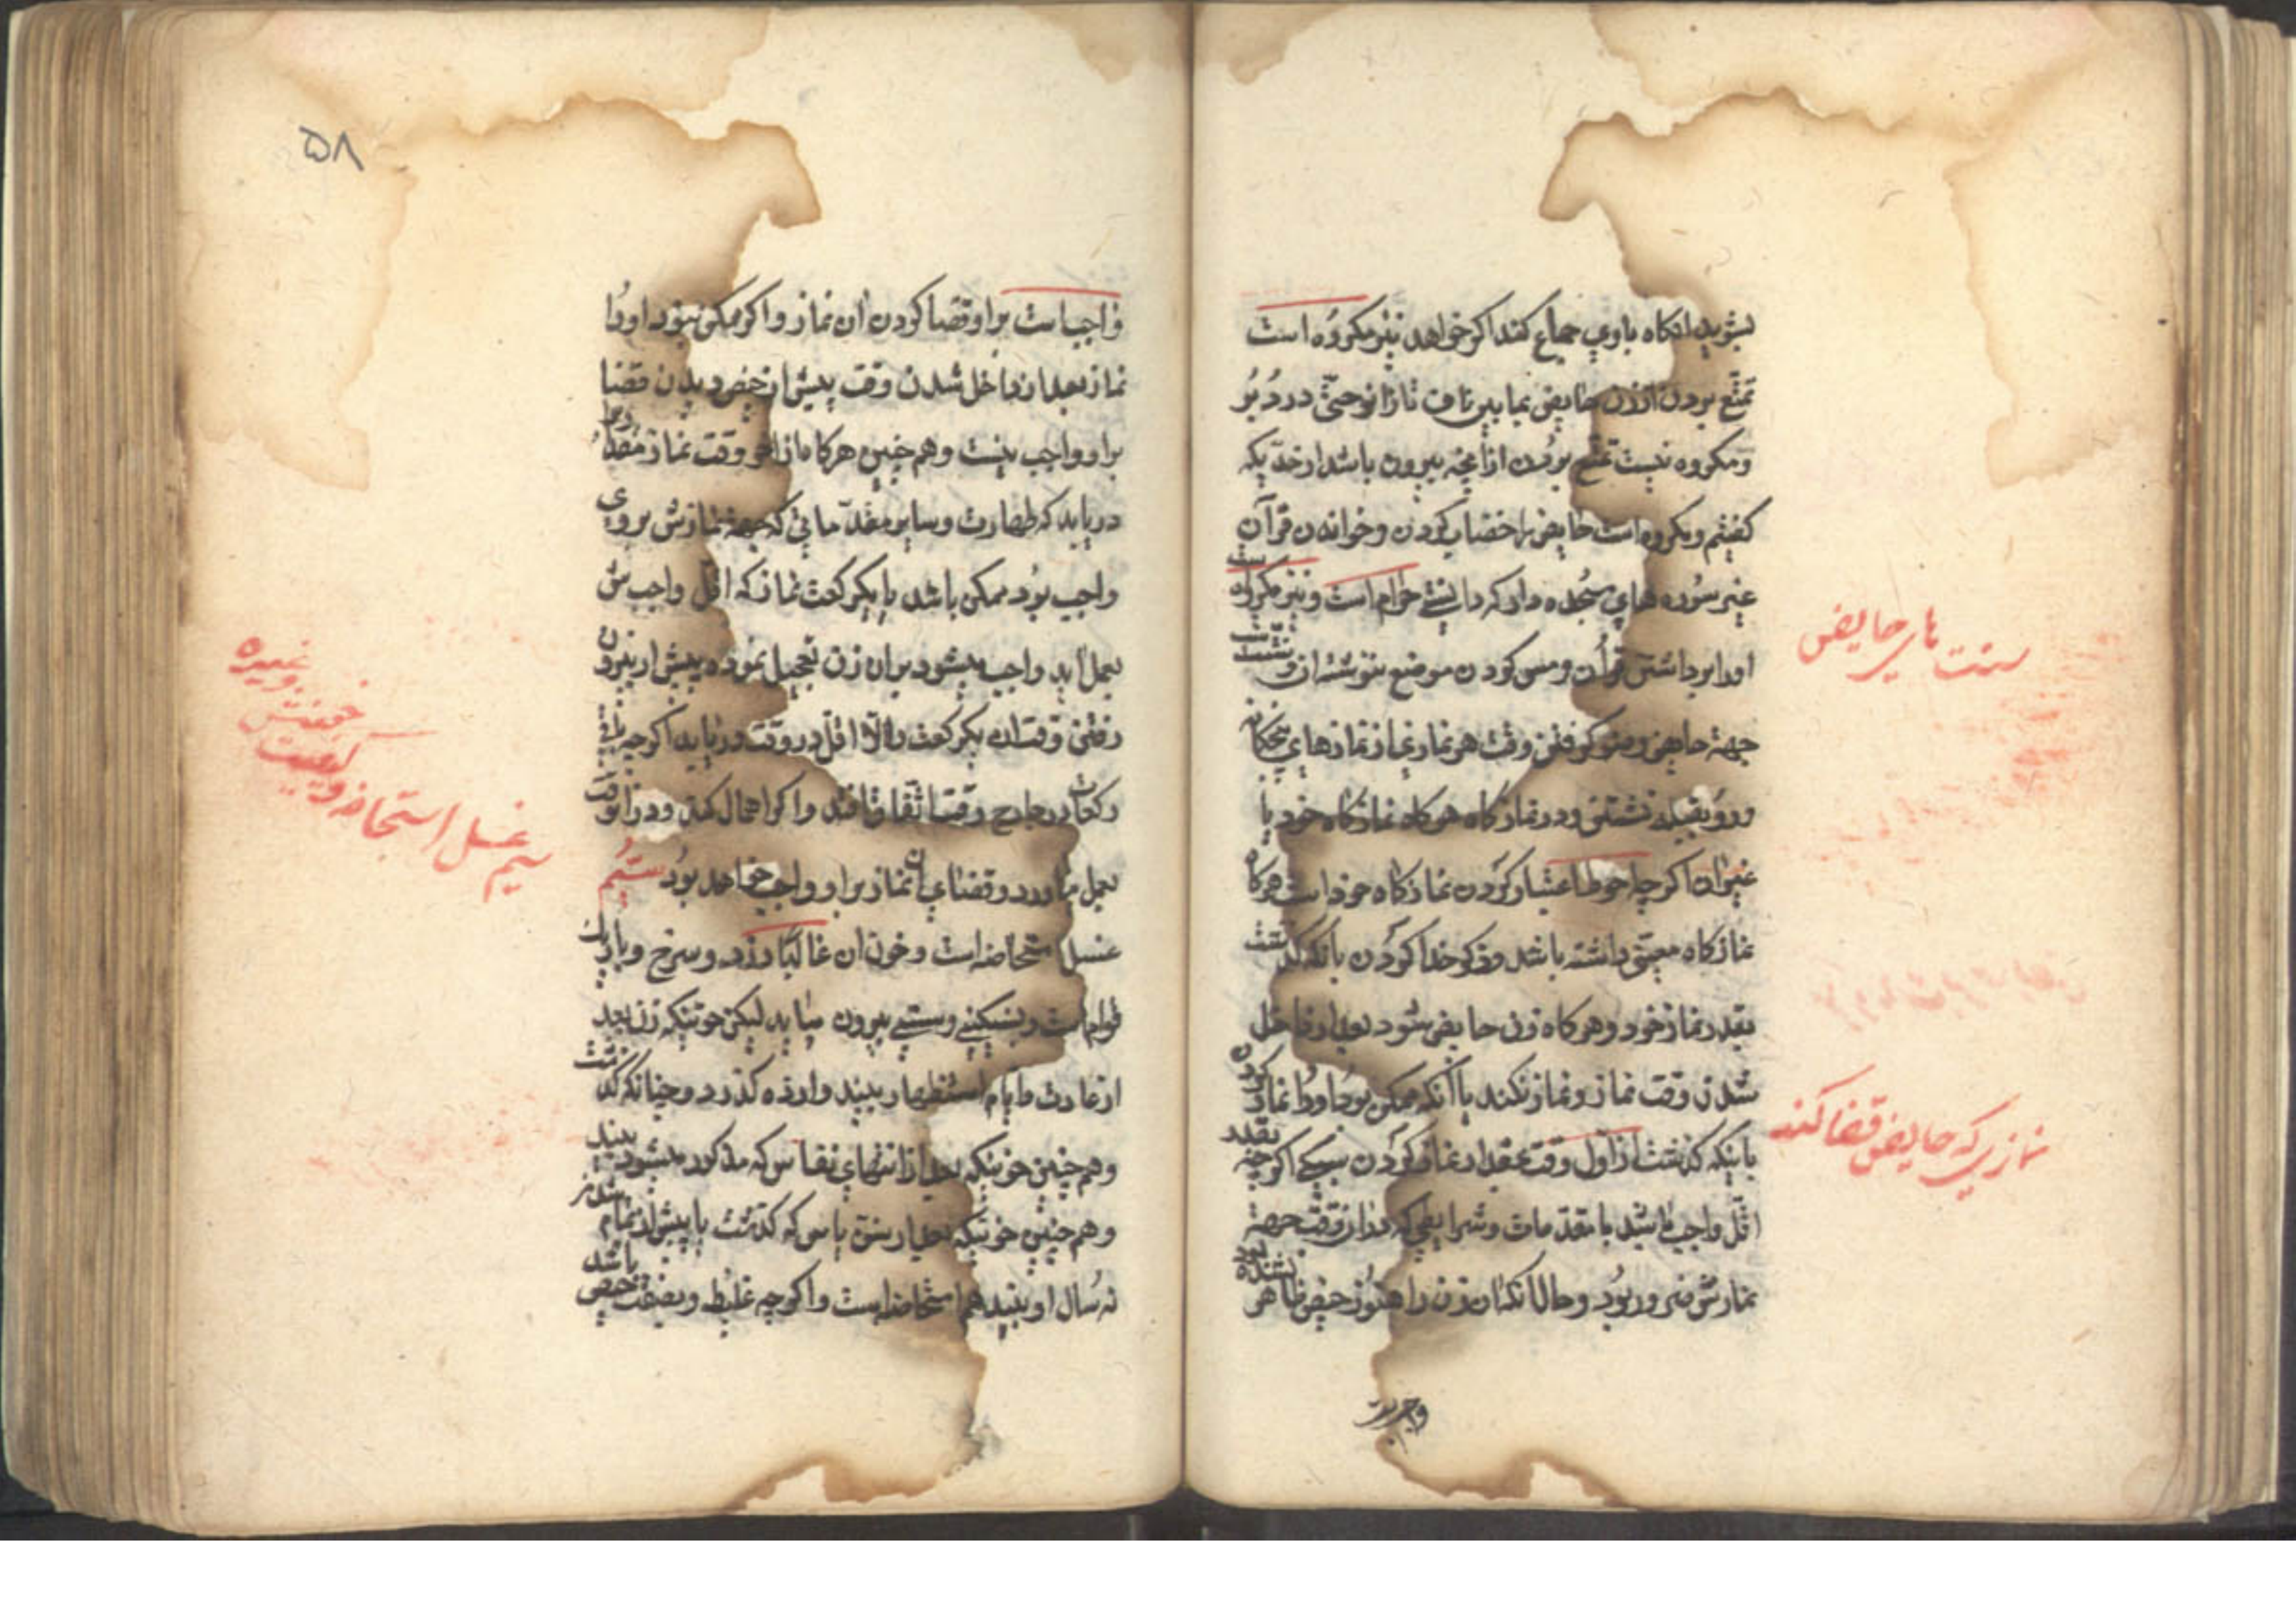 بشوید انکاه باوی جماع کند اکر خواهد نیز مکروه است
تمتّع بردن از زن حایض بمابین ناف تا زانو حتّی در دبر
ومکروه نیست تمتّع بردن ازانچه بیرون باشد از حدّیکه
کفتیم ومکروه است حایض را خضاب کردن وخواندن قرآن
غیر سوره های سجده دار که دانستی حرام است ونیز مکروه است
اورا برداشتن قران ومس کردن موضع ننوشته ان
جهة حایض وضو کرفتن وقت هر نماز از نمازهای پنجکانه
ورو بقبله نشستن ودر نمازکاه هرکاه نمازکاه خود یا
غیر ان اکرچه احوط اعتبار کردن نمازکاه خود است هرکاه
نمازکاه معیّنی داشته باشد وذکر خدا کردن بانکه کذشت
بقدر نماز خود وهرکاه زن حایض شود بعد از داخل
شدن وقت نماز ونماز نکند با آنکه ممکن بود اورا نماز کردن
باینکه کذشت از اول وقت بمقدار نماز کردن سبکی اکرچه بقدر
اقّل واجب باشد با مقدّمات وشرایطی که دران وقت جهة
نمازش ضرور بود وحال آنکه ان زن را هنوز حیض ظاهر نشده بود
واجبست
سنت های حایض
نمازی که حایض قضا کند
۵۸
واجبست براو قضا کردن ان نماز واکر ممکن نبود اورا
نماز بعد از داخل شدن وقت پیش از حیض دیدن قضا
براو واجب نیست وهم چنین هرکاه از آخر وقت نماز مقدار
دریابد که طهارت وسایر مقدّماتی که جهة نمازش بروی
واجب بود ممکن باشد با یکرکعت نماز که اقّل واجبش
بعمل اید واجب میشود بران زن تعجیل نموده پیش از بیرون
رفتن وقت ان یکرکعت را لا اقّل در وقت دریابد اکرچه باقی
رکعات در خارج وقت اتّفاق افتد واکر اهمال کند ودر انوقت
بعمل نیاورد وقضای ان نماز براو واجب خواهد بود سیّم
غسل استحاضه است وخون ان غالبًا زرد وسرخ وباریک
قوام است وبسکینی وسستی بیرون میاید لیکن خونیکه زن بعد
از عادت وایّام استظهار ببیند وازده کذرد وچنانکه کذشت
وهم چنین خونیکه بعد از انتهای نفاس که مذکور میشود ببیند
وهم چنین خونیکه بعد از سنّ یاس که کذشت یا پیش از تمام شدن
نه سال او ببیند هم استحاضه است واکرچه غلیظ وبصفت حیض باشد
سیم غسل استحاضه وکیفیت
خونش
وغیره